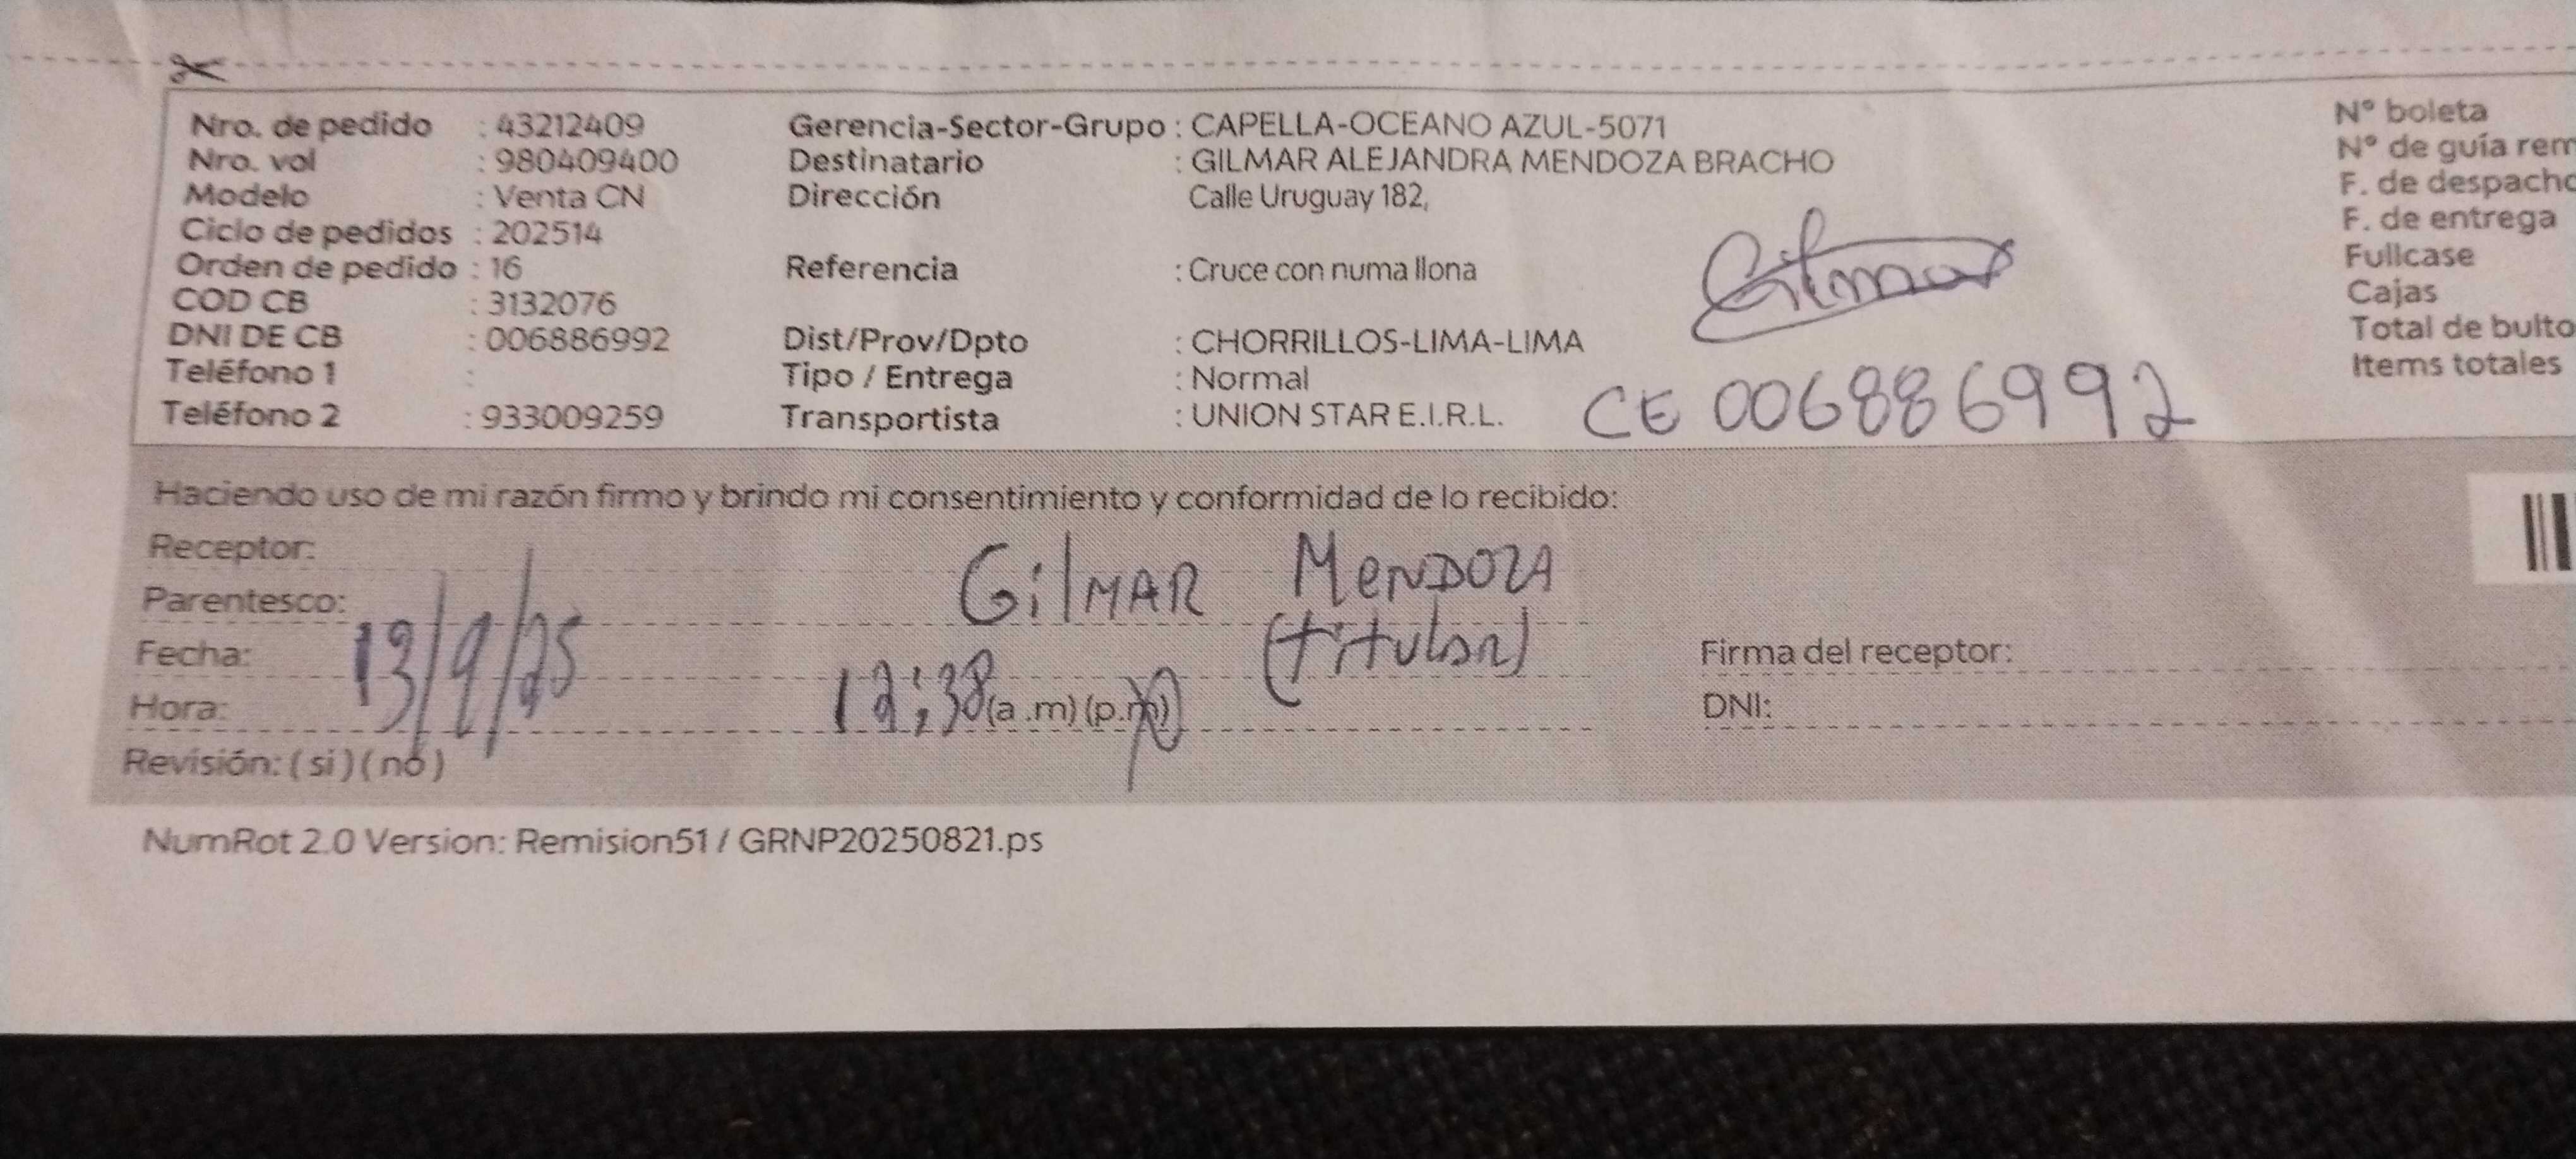 Nro. de pedido : 43212409 Gerencia-Sector-Grupo : CAPELLA-OCEANO AZUL-5071 N° boleta
Nro. vol : 980409400 Destinatario : GILMAR ALEJANDRA MENDOZA BRACHO N° de guía rem
Modelo : Venta CN Dirección Calle Uruguay 182, F. de despacho
Ciclo de pedidos : 202514 F. de entrega
Orden de pedido : 16 Referencia : Cruce con numa llona Gilmar Fullcase
COD CB : 3132076 Cajas
DNI DE CB : 006886992 Dist/Prov/Dpto : CHORRILLOS-LIMA-LIMA Total de bulto
Teléfono 1 : Tipo / Entrega : Normal Items totales
Teléfono 2 : 933009259 Transportista : UNION STAR E.I.R.L. CE 006886992
Haciendo uso de mi razón firmo y brindo mi consentimiento y conformidad de lo recibido:
Receptor: GilMAR MeNDOZA
Parentesco: (titular)
Fecha: 13/9/25 Firma del receptor:
Hora: 12:38 (a .m) (p.m) DNI:
Revisión: ( si ) ( no )
NumRot 2.0 Version: Remision51 / GRNP20250821.ps